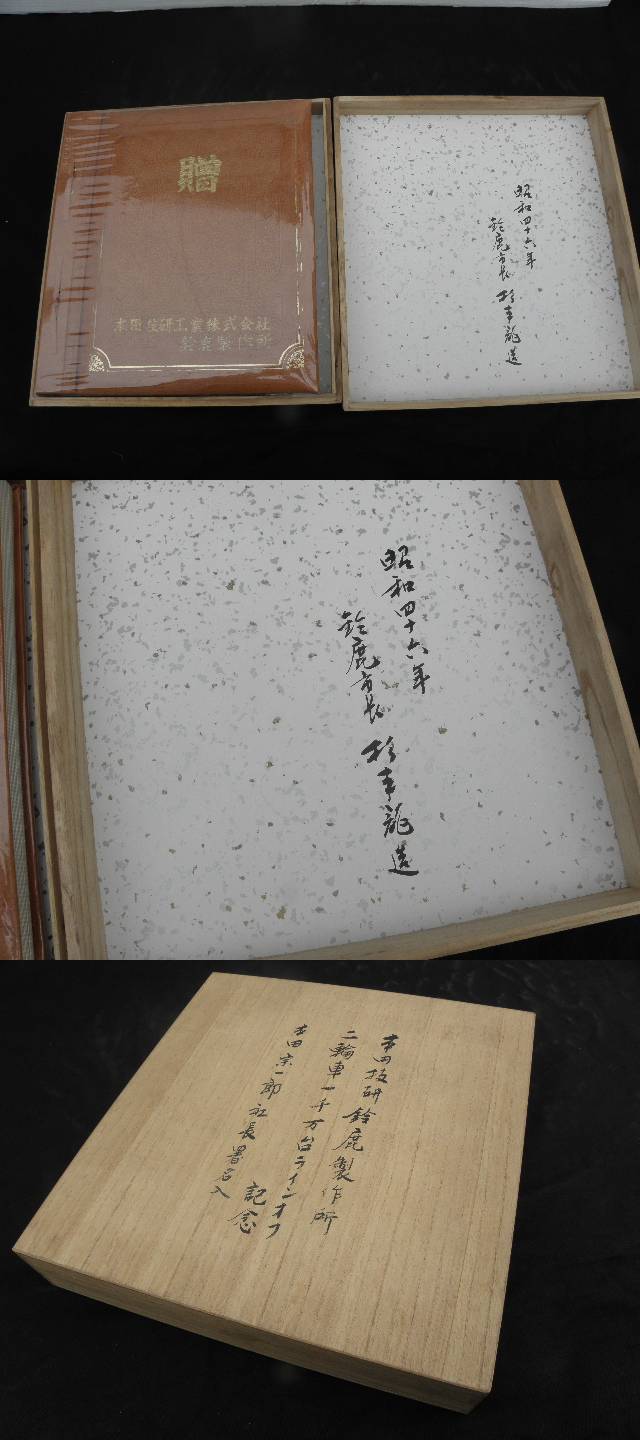 贈
本田技研工業株式会社
鈴鹿製作所
昭和四十六年
鈴鹿市長 杉本龍造
昭和四十六年
鈴鹿市長 杉本龍造
本田技研鈴鹿製作所
二輪車一千万台ラインオフ
記念
本田宗一郎社長署名入